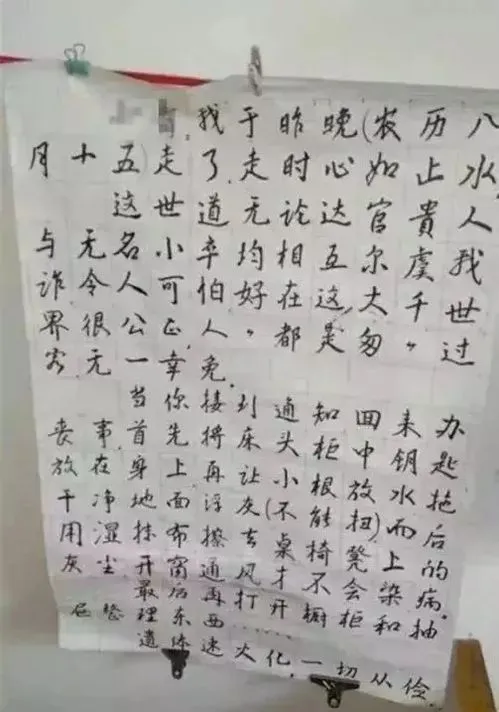 我于昨晚(农历八
月十五)走了,走时心如止水,
这世道无论达官贵人
与无名小卒均相互尔虞我
诈,令人可怕,好在这大千世
界很公正,人〃都是匆〃过
客,无一幸免.
当你接到通知回来办
丧事,首先将床头柜中钥匙
放在身上再让小根放水拖
干净地面浮灰(不能扭)而后
用湿抹布擦去桌椅凳上的
灰尘开窗通风才不会染病.
最后再打开橱柜和抽
屉整理东西....
遗体速火化,一切从俭.